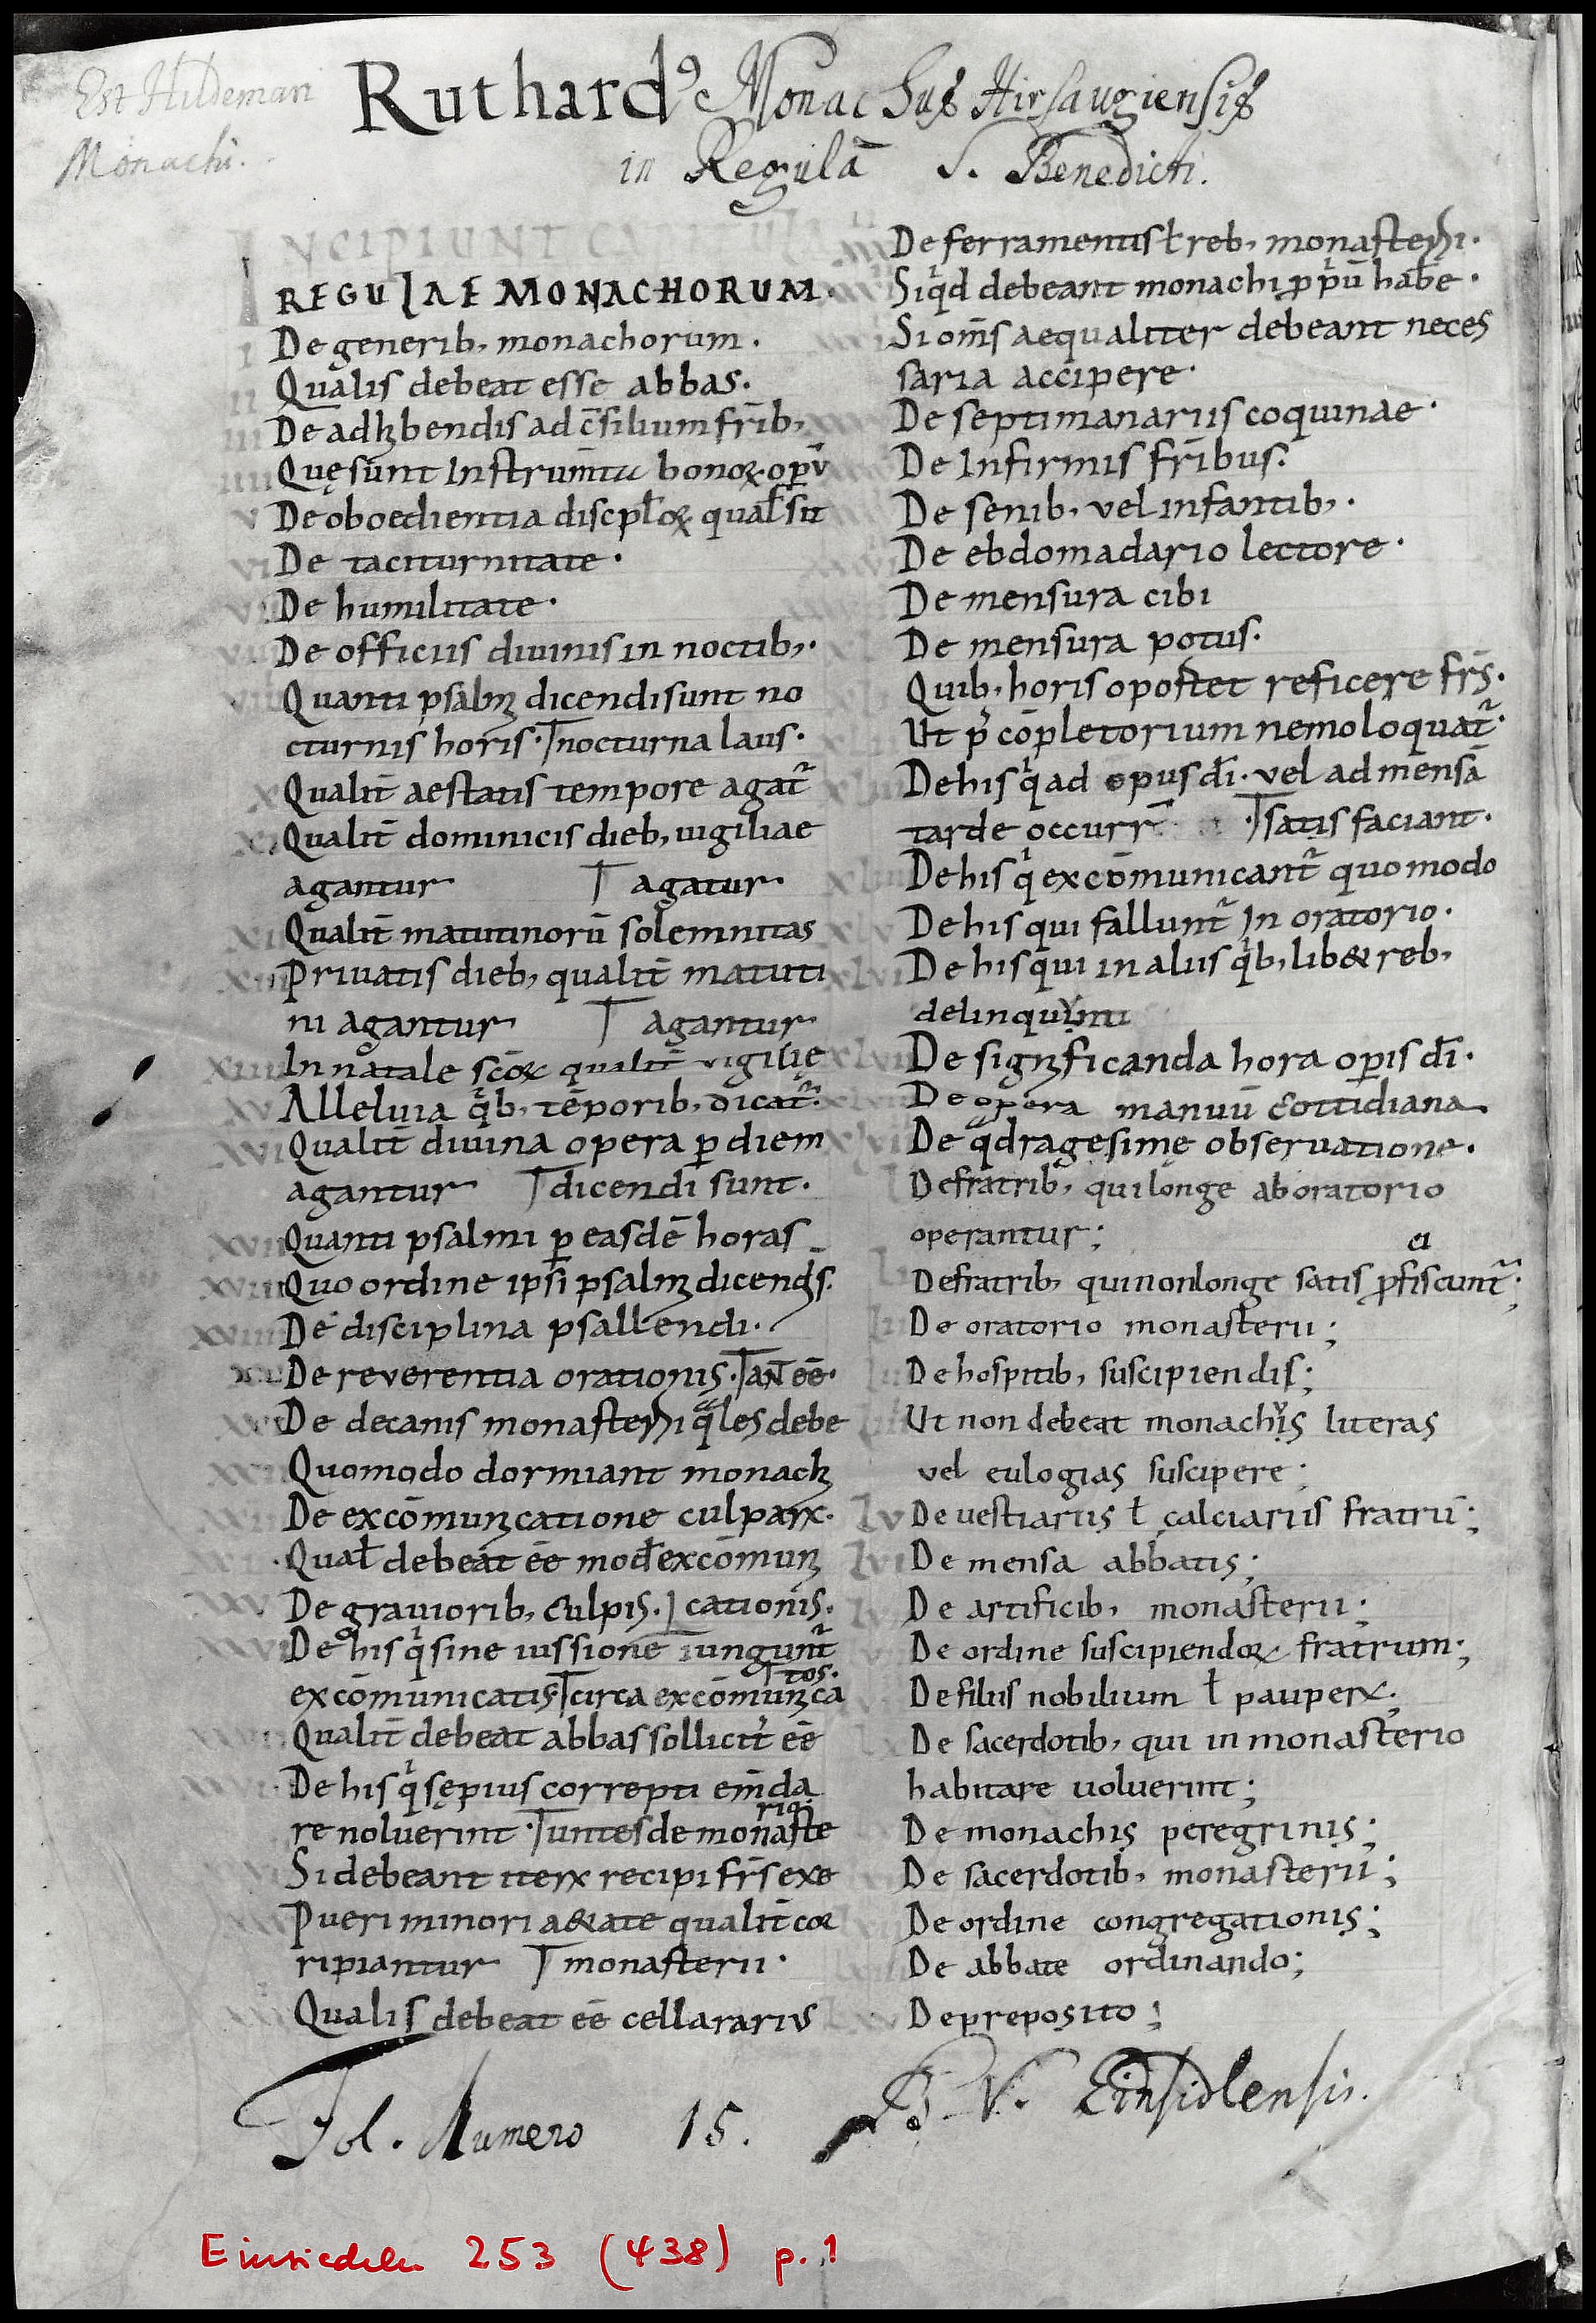 Est Hildemari
Monachi.
Ruthardꝰ Monachus Hirsaugiensis
in Regulā S. Benedicti.
INCIPIUNT CA
REGULAE MONACHORUM.
I De generib, monachorum.
II Qualis debeat esse abbas.
III De adhibendis ad c̄silium fr̄ib,
IIII Quę sunt Instrum̄ta bonoꝝ. oꝑū
V De oboedientia discipl̄oꝝ qual̄ sit
VI De taciturnitate.
VII De humilitate.
De officiis diuinis in noctib,.
Quanti psalmi dicendi sunt no
cturnis horis. nocturna laus.
X Qualit̄ aestatis tempore agat᷑
XI Qualit̄ dominicis dieb, uigiliae
agantur agatur
XII Qualit̄ matutinorū solemnitas
XIII Priuatis dieb, qualit̄ matuti
ni agantur agantur
XIIII In natale sc̄oꝝ qualit̄ vigilię
XV Alleluia qͥb, tēporib, dicat᷑.
XVI Qualit̄ diuina opera ꝑ diem
agantur dicendi sunt.
XVII Quanti psalmi ꝑ easdē horas
XVIII Quo ordine ipsi psalmi dicendi s̄.
XVIIII De disciplina psallendi.
XX De reverentia orationis. an̄t ēē.
De decanis monasterii qͣles debe
Quomodo dormiant monachi
De excōmunicatione culparꝝ.
Qual̄ debeat ēē mod̄ excōmuni
De grauiorib, culpis. cationis.
De his qͥ sine iussione iungunt᷑
tos.
excōmunicatis circa excōmunica
Qualit̄ debeat abbas sollicit᷒ ēē
De his qͥ sępius correpti em̄da
rio.
re noluerint. untes de monaste
Si debeant iterꝝ recipi fr̄s exe
Pueri minori a&ate qualit̄ cor
ripiantur monasterii.
Qualis debeat ēē cellararius
De ferramentis ł reb, monasterii.
Si qͥd debeant monachi ꝓpͥū hab̄e.
Si om̄s aequaliter debeant neces
saria accipere.
De septimanariis coquinae.
De Infirmis fr̄ibus.
De senib, vel infantib,.
De ebdomadario lectore.
De mensura cibi
De mensura potus.
Quib, horis oportet reficere fr̄s.
Ut p᷒ cōpletorium nemo loquat᷑.
De his qͥ ad opus dī. vel ad mensā
tarde occurr̄ . satis faciant.
De his qͥ excōmunicant᷑ quomodo
De his qui fallunt᷑ In oratorio.
XLVI De his qui in aliis qͥb, lib& reb,
delinquunt
De significanda hora oꝑis dī.
De opera manuū cottidiana
De qͣdragesimę obseruatione.
De fratrib, qui longe ab oratorio
operantur;
ci
De fratrib, qui non longe satis ꝓfiscunt᷑;
De oratorio monasterii;
De hospitib, suscipiendis;
Ut non debeat monachus literas
vel eulogias suscipere;
LV De uestiariis ł calciariis fratrū;
LVI De mensa abbatis;
De artificib, monasterii;
De ordine suscipiendoꝝ fratrum;
De filiis nobilium ł pauperꝝ;
De sacerdotib, qui in monasterio
habitare uoluerint;
De monachis peregrinis;
De sacerdotib, monasterii;
De ordine congregationis;
De abbate ordinando;
De preposito;
Fol. Numero 15. B. V. Einsidlensis.
Einsiedeln 253 (438) p. 1